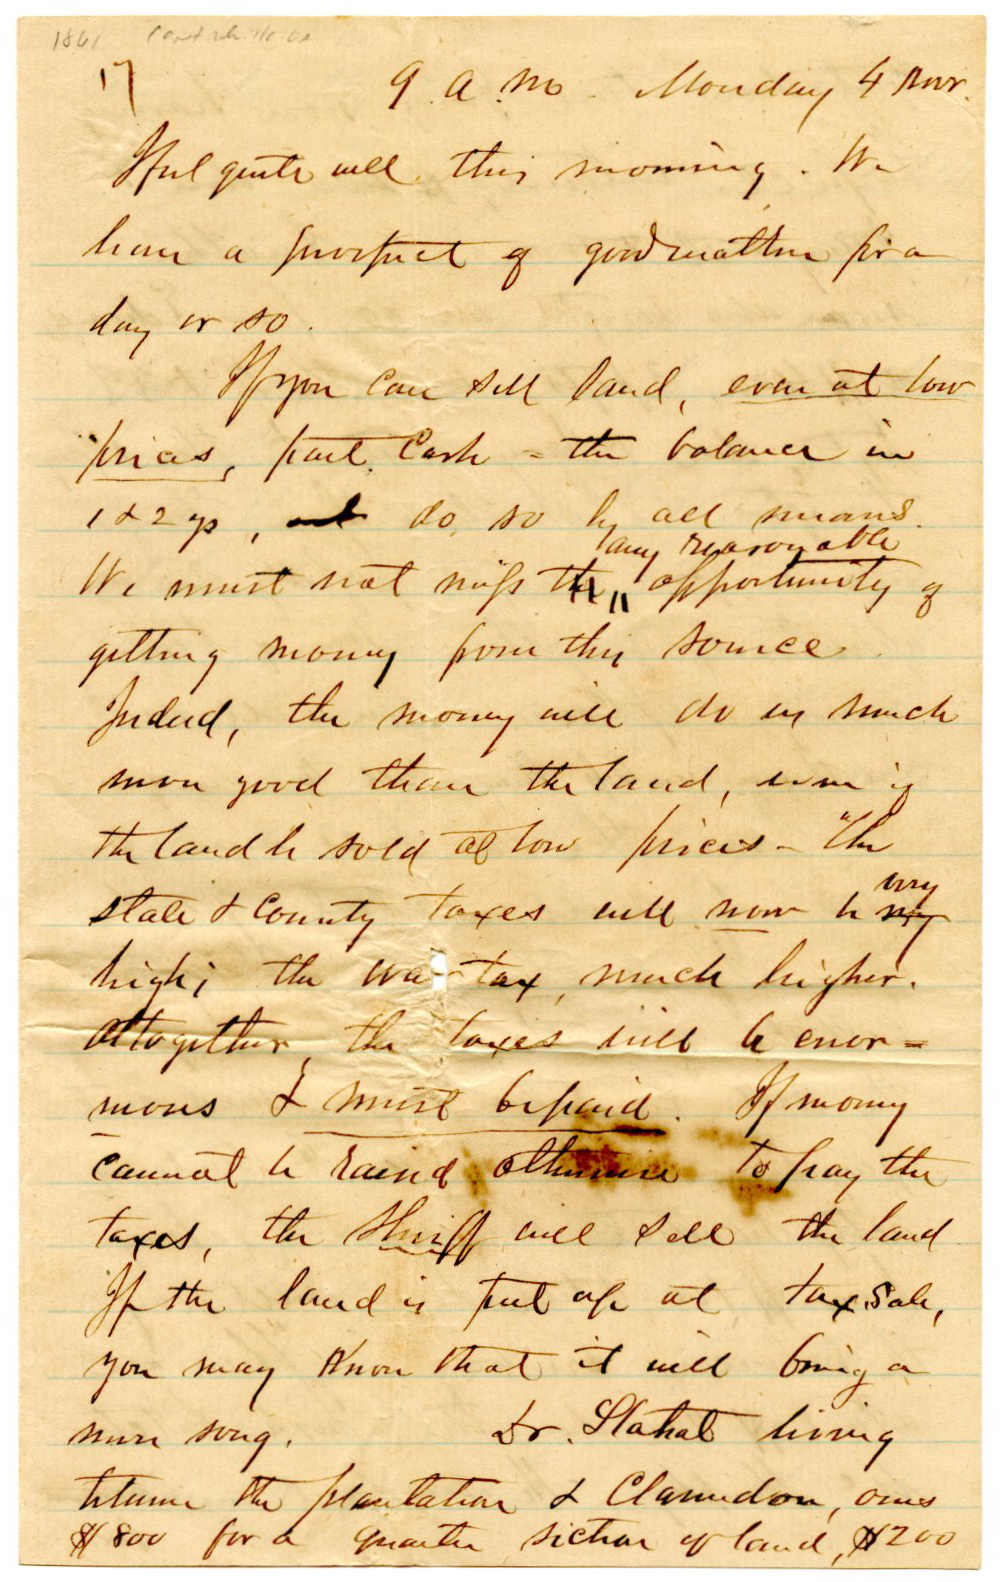 1861
17
9 A.M. Monday 4 Novr.
I feel quite well this morning. We
have a prospect of good weather for a
day or so.
If you can sell land, even at low
prices, part cash = the balance in
1 & 2 ys, do so by all means.
any reasonable
We must not miss the opportunity of
getting money from this source.
Indeed, the money will do us much
more good than the land, even if
the land be sold at low prices - The
very
state & County taxes will now be very
high; the war tax, much higher.
Altogether, the taxes will be enor=
mous & must be paid. If money
cannot be raised otherwise to pay the
taxes, the Sheriff will sell the land
If the land is put up at tax sale,
you may know that it will bring a
mere song. Dr. Slahat living
between the plantation & Clarendon, owes
$800 for a quarter section of land, $200